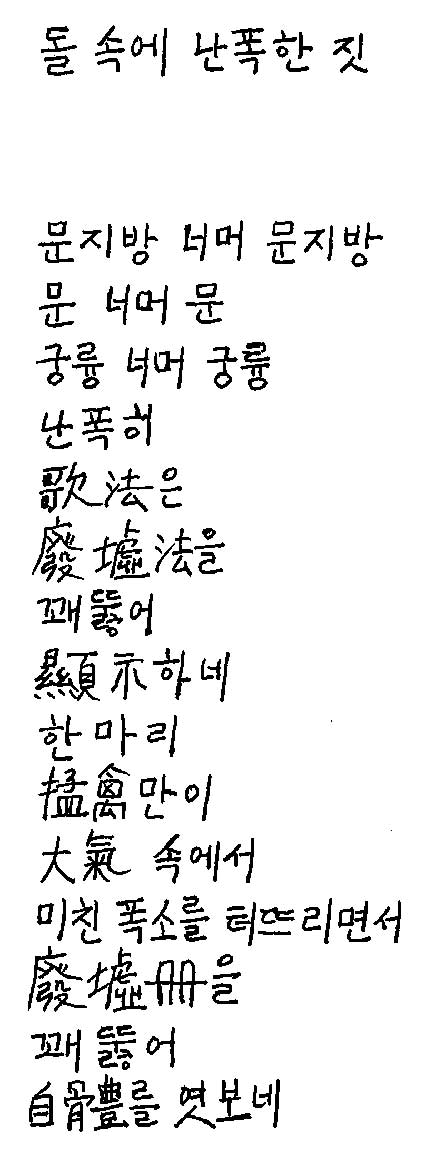 돌 속에 난폭한 짓
문지방 너머 문지방
문 너머 문
궁륭 너머 궁륭
난폭히
歌法은
廢墟法을
꽤뚫어
顯示하네
한마리
猛禽만이
大氣 속에서
미친 폭소를 터뜨리면서
廢墟冊을
꽤뚫어
自骨豊를 엿보네